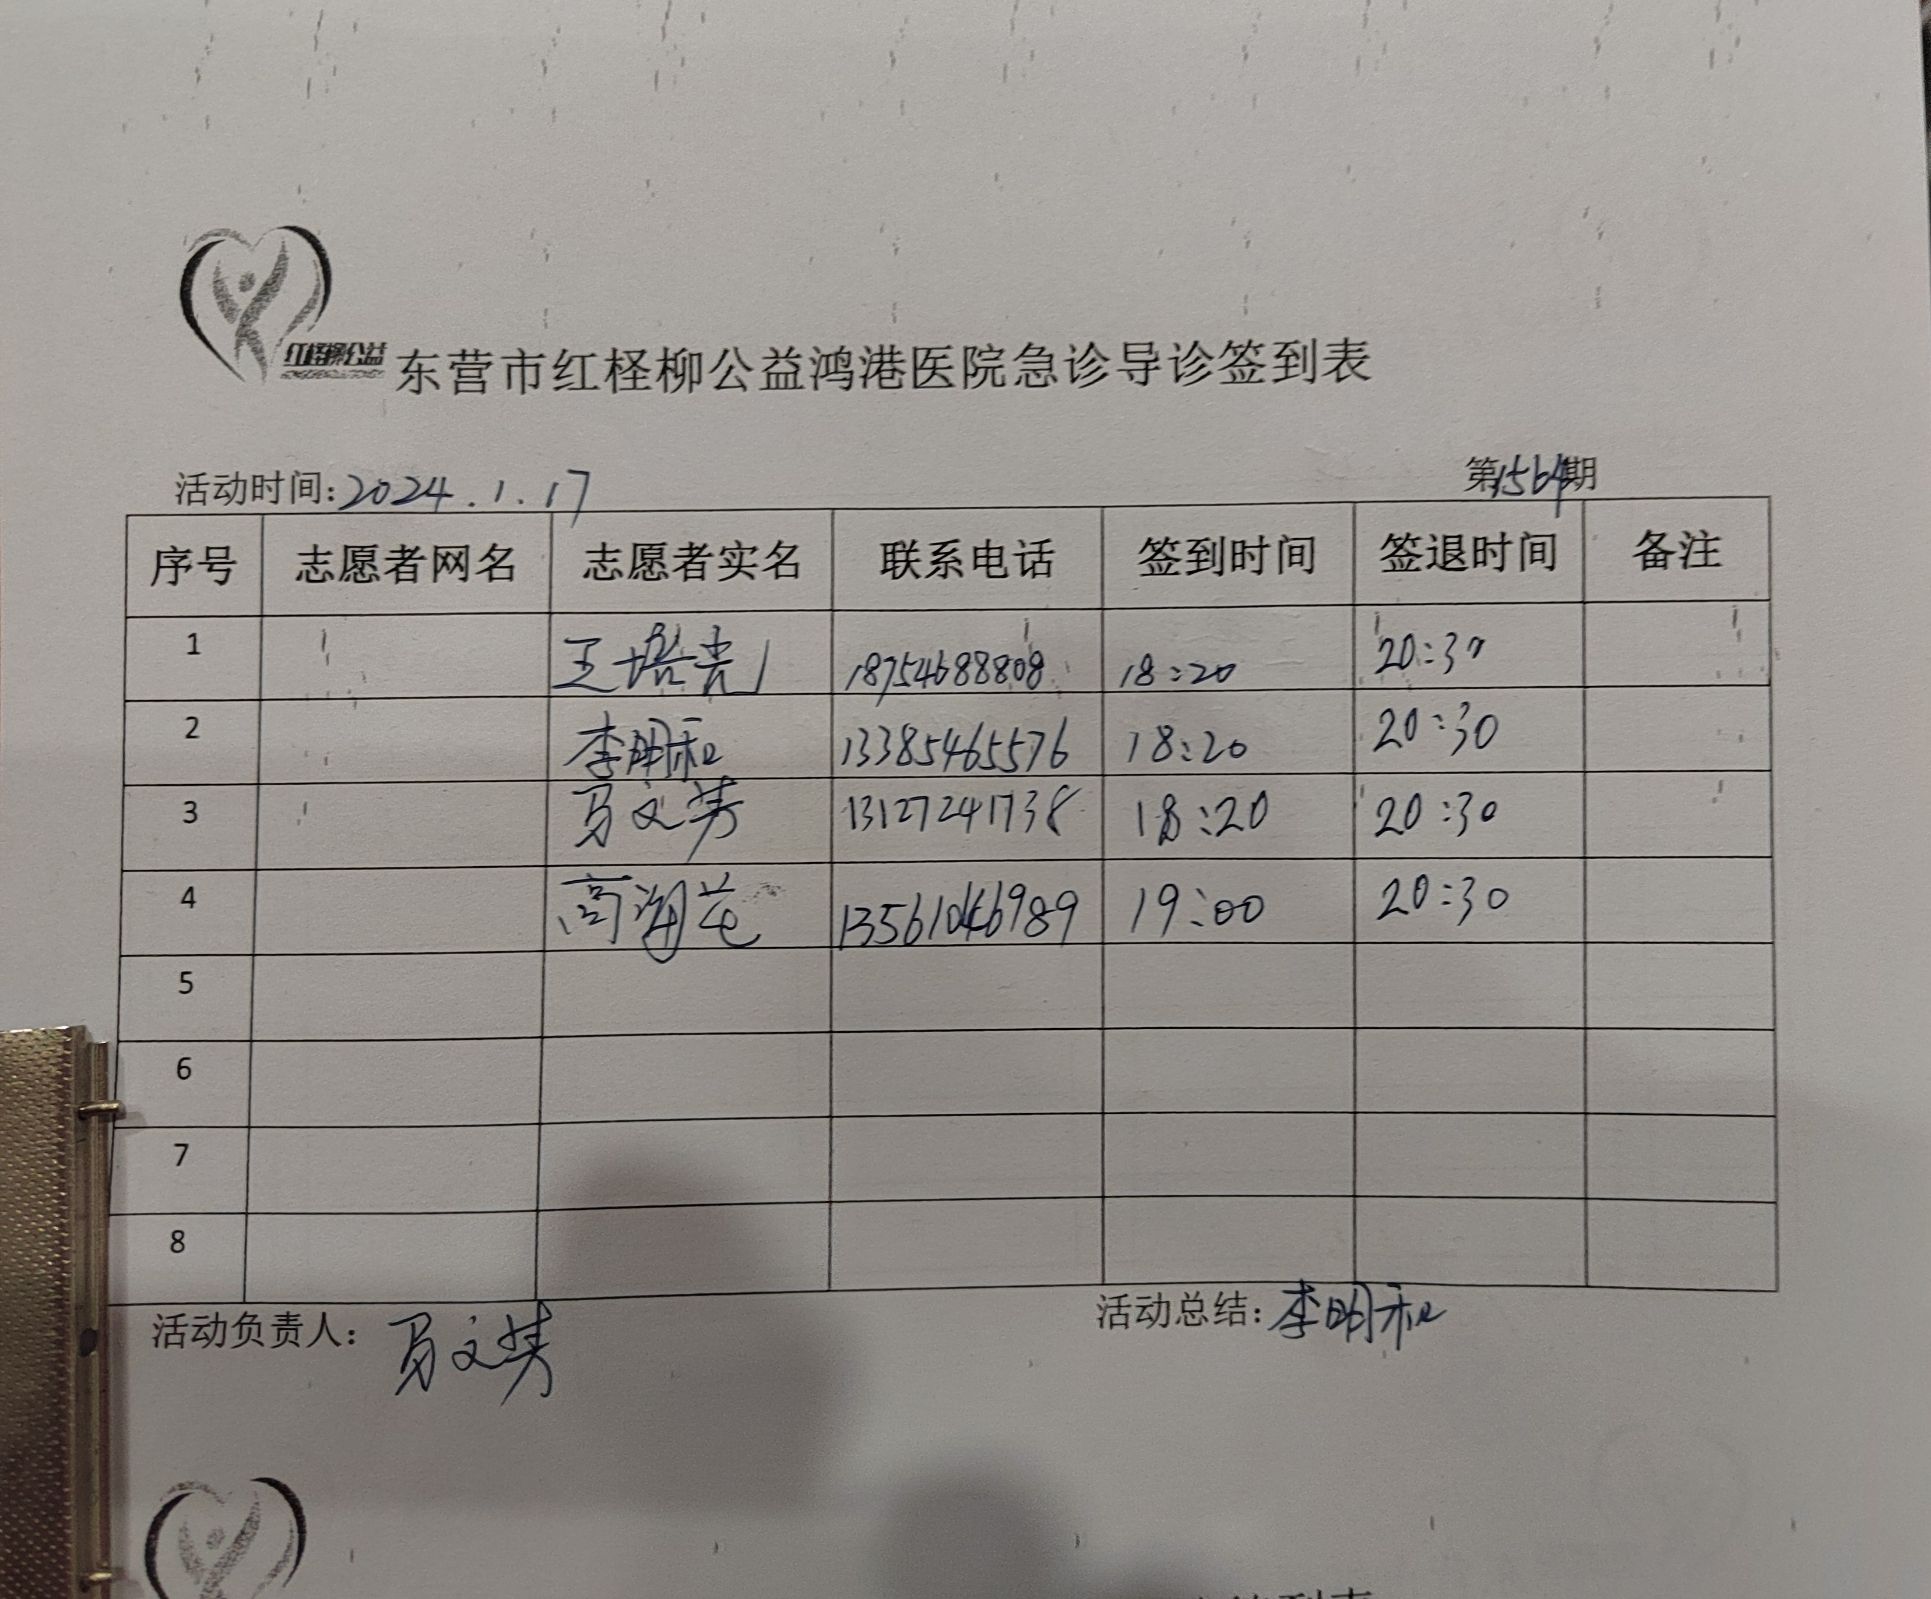 红柽柳公益
东营市红柽柳公益鸿港医院急诊导诊签到表
活动时间:2024.1.17 第1564期
序号 志愿者网名 志愿者实名 联系电话 签到时间 签退时间 备注
1 王培贵 18754688808 18:20 20:30
2 李明和 13385465576 18:20 20:30
3 马文芳 13127241738 18:20 20:30
4 高海花 13561046989 19:00 20:30
5
6
7
8
活动负责人: 马文芳 活动总结:李明和